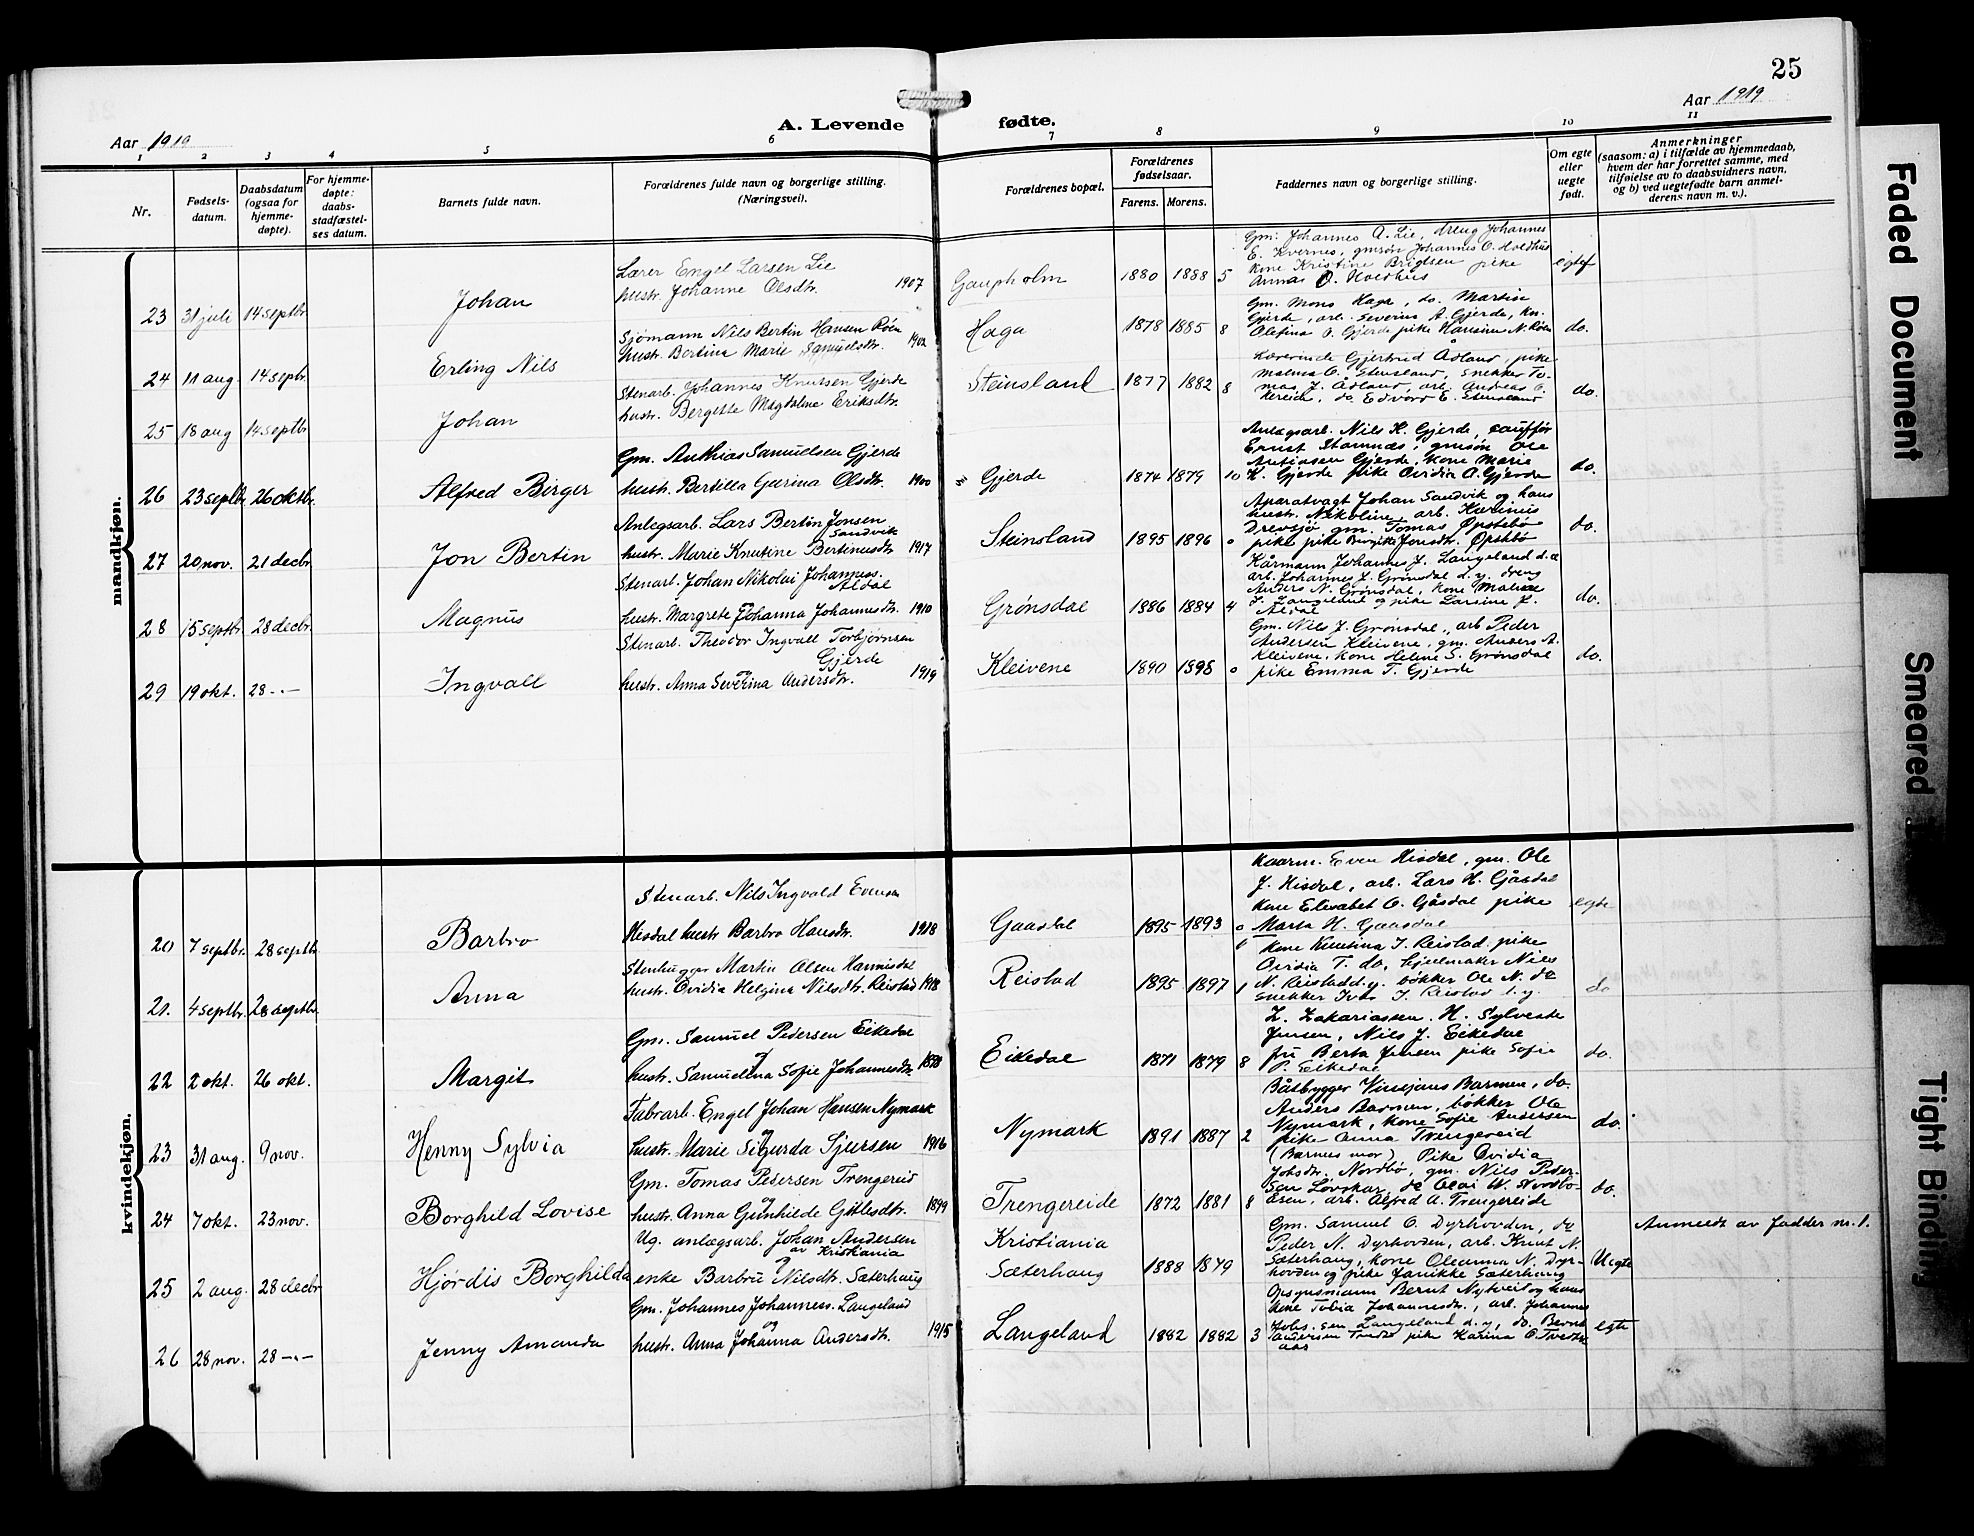 25
Aar 1919
A. Levende fødte.
Aar 1919
1 2 3 4 5 6 7 8 9 10 11
Nr.
Fødsels-
datum.
Daabsdatum
(ogsaa for
hjemme-
døpte).
For hjemme-
døpte:
daabs-
stadfæstel-
ses datum.
Barnets fulde navn.
Forældrenes fulde navn og borgerlige stilling.
(Næringsvei).
Forældrenes bopæl.
Forældrenes
fødselsaar.
Farens. Morens.
Faddernes navn og borgerlige stilling.
Om egte
eller
uegte
født.
Anmerkninger
(saasom: a) i tilfælde av hjemmedaab,
hvem der har forrettet samme, med
tilføielse av to daabsvidners navn,
og b) ved uegtefødte barn anmel-
derens navn m. v.).
mandkjøn.
23 31 juli 14 septbr Johan
Lærer Engel Larsen Lie
hustr. Johanne Olsdtr. 1907
Gaupholm 1880 1888 5
Gm. Johannes A. Lie, dreng Johannes
E. Kvernes, gmsøn Johannes O. Holdhus
kone Kristine Brigtsen pike
Annas O. Holdhus
egtef
24 11 aug. 14 septbr. Erling Nils
Sjømann Nils Bertin Hansen Røen
hustr. Bertina Marie Samuelsdtr. 1902
Haga 1878 1885 8
Gm. Mons Haga, do. Martin
Gjerde, arb. Severin A. Gjerde, kn.
Olefina O. Gjerde pike Hansine N. Røen
do.
25 18 aug 14 septbr Johan
Stenarb. Johannes Knutsen Gjerde
hustr. Bergitte Magdaline Eriksdtr.
Steinsland 1877 1882 8
Lærerinde Gjertrud Ådland, pike
Malena O. Steinsland, snekker To-
mas J. Ådland, arb. Andreas O.
do. Edvard E. Steinsland
do.
26 23 septbr. 26 oktbr. Alfred Birger
Gm. Anthias Samuelsen Gjerde
hustr. Bertilla Gurina Olsdtr. 1900
Gjerde 1874 1879 10
Anlægsarb. Nils K. Gjerde, sauffør
Ernst Stamnes, gmsøn Ole
Antinsen Gjerde, kone Marie
K. Gjerde pike Ovidia A. Gjerde
do.
27 20 nov. 21 decbr Jon Bertin
Anlegsarb. Lars Bertin Jonsen
Sandvik
hustr. Marie Knutine Bertinusdtr 1917
Steinsland 1895 1896 0
Aparatvagt Johan Sandvik og hans
hustr. Nikoline, arb.
Drevsjø gm. Tomas Øpstebø
pike pike Birgite Jonsdtr. Øpstebø
do.
28 15 septbr. 28 decbr. Magnus
Stenarb. Johan Nikolai Johannes.
Aldal
hustr. Margrete Johanna Johannesdtr. 1910
Grønsdal 1886 1884 4
Kårmann Johannes J. Langeland d.æ
arb. Johannes J. Grønsdal d.y. dreng
Anders N. Grønsdal, kone Malene
J. Langeland og pike Larsine J.
Aldal
do.
29 19 okt. 28 -"- Ingvall
Stenarb. Theodor Ingvall Torbjørnsen
Gjerde
hustr. Anna Severina Andersdtr. 1919
Kleivene 1890 1898 0
Gm. Nils J. Grønsdal, arb Peder
Andersen Kleivene, gm. Anders A.
Kleivene, kone Helene S. Grønsdal
pike Emma T. Gjerde
do.
kvindekjøn.
20 7 septbr. 28 septbr Barbro
Stenarb. Nils Ingvald Evensen
Hisdal hustr Barbro Hansdtr. 1918
Gaasdal 1895 1893 0
Kaarm. Even Hisdal, gm. Ole
J. Hisdal, arb. Lars H. Gåsdal
kone Elisabet O. Gåsdal pike
Marta H. Gaasdal
egte
21. 4 septbr. 28 septbr. Anna
Stenhugger Martin Olsen Hannisdal
hustr. Ovidia Helgina Nilsdtr. Reistad 1918
Reistad 1895 1897 1
Kone Knutina J. Reistad. pike
Ovidia T. do, hjulmaker Nils
N. Reistad d.y. bøkker Ole N. do
snekker Ivar J. Reistad d.y.
do
22 2 okt. 26 okt. Margit
Gm. Samuel Pedersen Eikedal
hustr. Samuelina Sofie Johannesdtr 1898
Eikedal 1871 1879 8
Z. Zakariassen. H. Sylveste
Jensen, Nils J. Eikedal
fru Berta Jensen pike Sofie
P. Eikedal
do.
23 31 aug. 9 nov. Henny Sylvia
Fabrarb. Engel Johan Hansen Nymark
hustr. Marie Sigurda Sjursen 1916
Nymark 1891 1887 2
Båtbygger Vinsjans Barmen, do.
Anders Barmen, bøkker Ole
Nymark, kone Sofie Andersen
pike Anna Trengereid
do.
24 7 okt. 23 nov. Borghild Lovise
Gm. Tomas Pedersen Trengereid
hustr. Anna Gunhilde Gitlesdtr. 1899
Trengereide 1872 1881 8
(Barnets mor) Pike Ovidia
Johsdtr. Nordbø, gm. Nils Peder-
sen Løvskar, do Olai W. Nordbo-
åsen, arb. Alfred A. Trengereide
do.
25 2 aug. 28 decbr Hjørdis Borghilda
Ug. anlægsarb. Johan Andersen
av Kristiania
og
enke Barbru Nilsdtr. Sæterhaug
Kristiania
Sæterhaug 1888 1879
Gm. Samuel O. Dyrhovden, do
Peder N. Dyrhovden, arb. Knut N.
Sæterhaug, kone Oleanna N. Dyr-
hovden og pike Janikke Sæterhaug
Uegte
Anmeldt av fadder nr. 1.
26 28 nov. 28 -"- Jenny Amanda
Gm. Johannes Johannesn. Langeland
og
hustr. Anna Johanna Andersdtr. 1915
Langeland 1882 1882 3
Opsynsmann Bernt Nytveit og hans
kone Tobia Johannesdtr., arb. Johannes
Johs. sen Langeland d.y., do. Bernt
Andersen Tunds pike Karina O. Tveter-
aas
egte
Faded Document
Smeared
Tight Binding